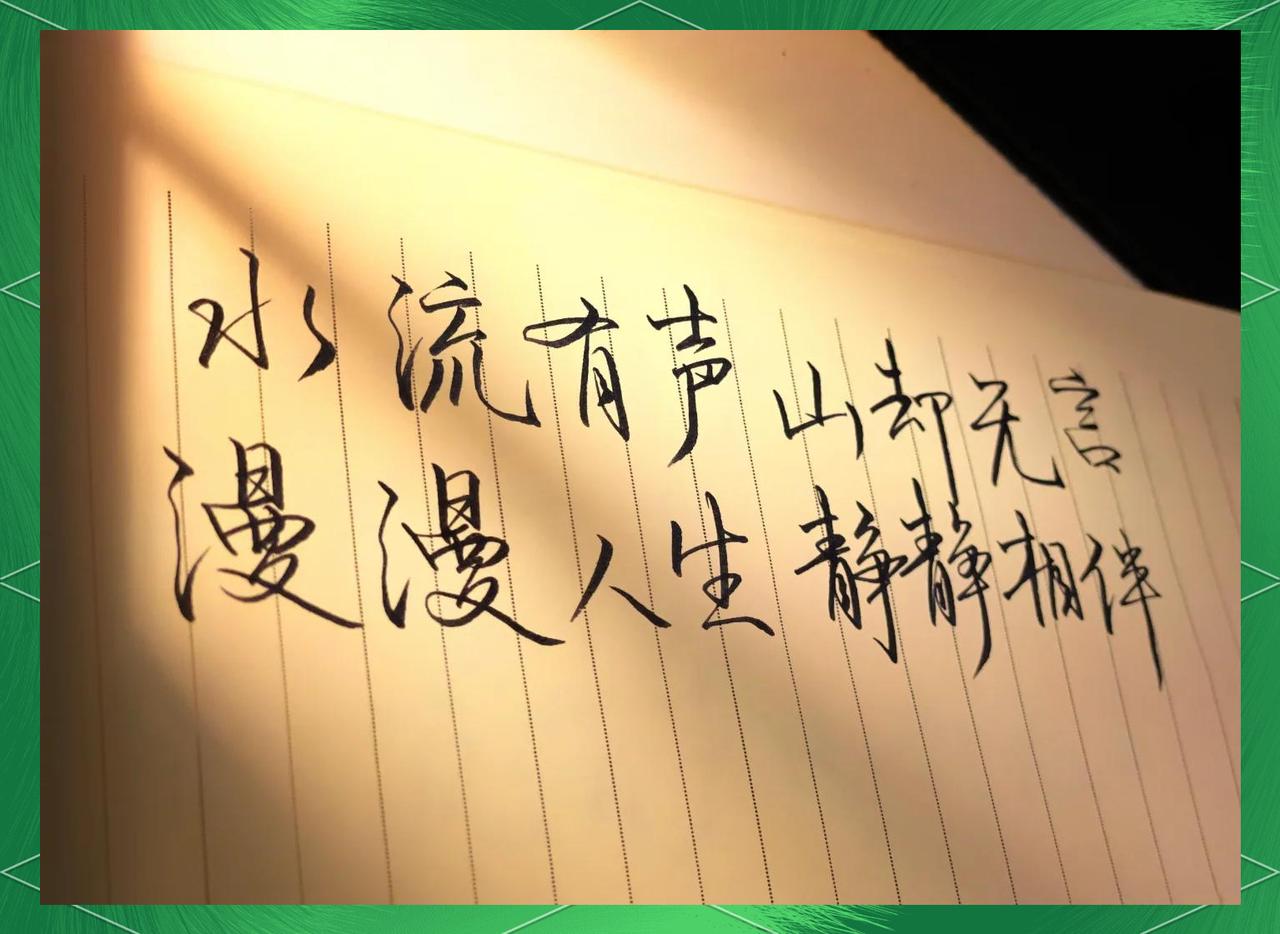 水流有声 山却无言
漫漫人生 静静相伴